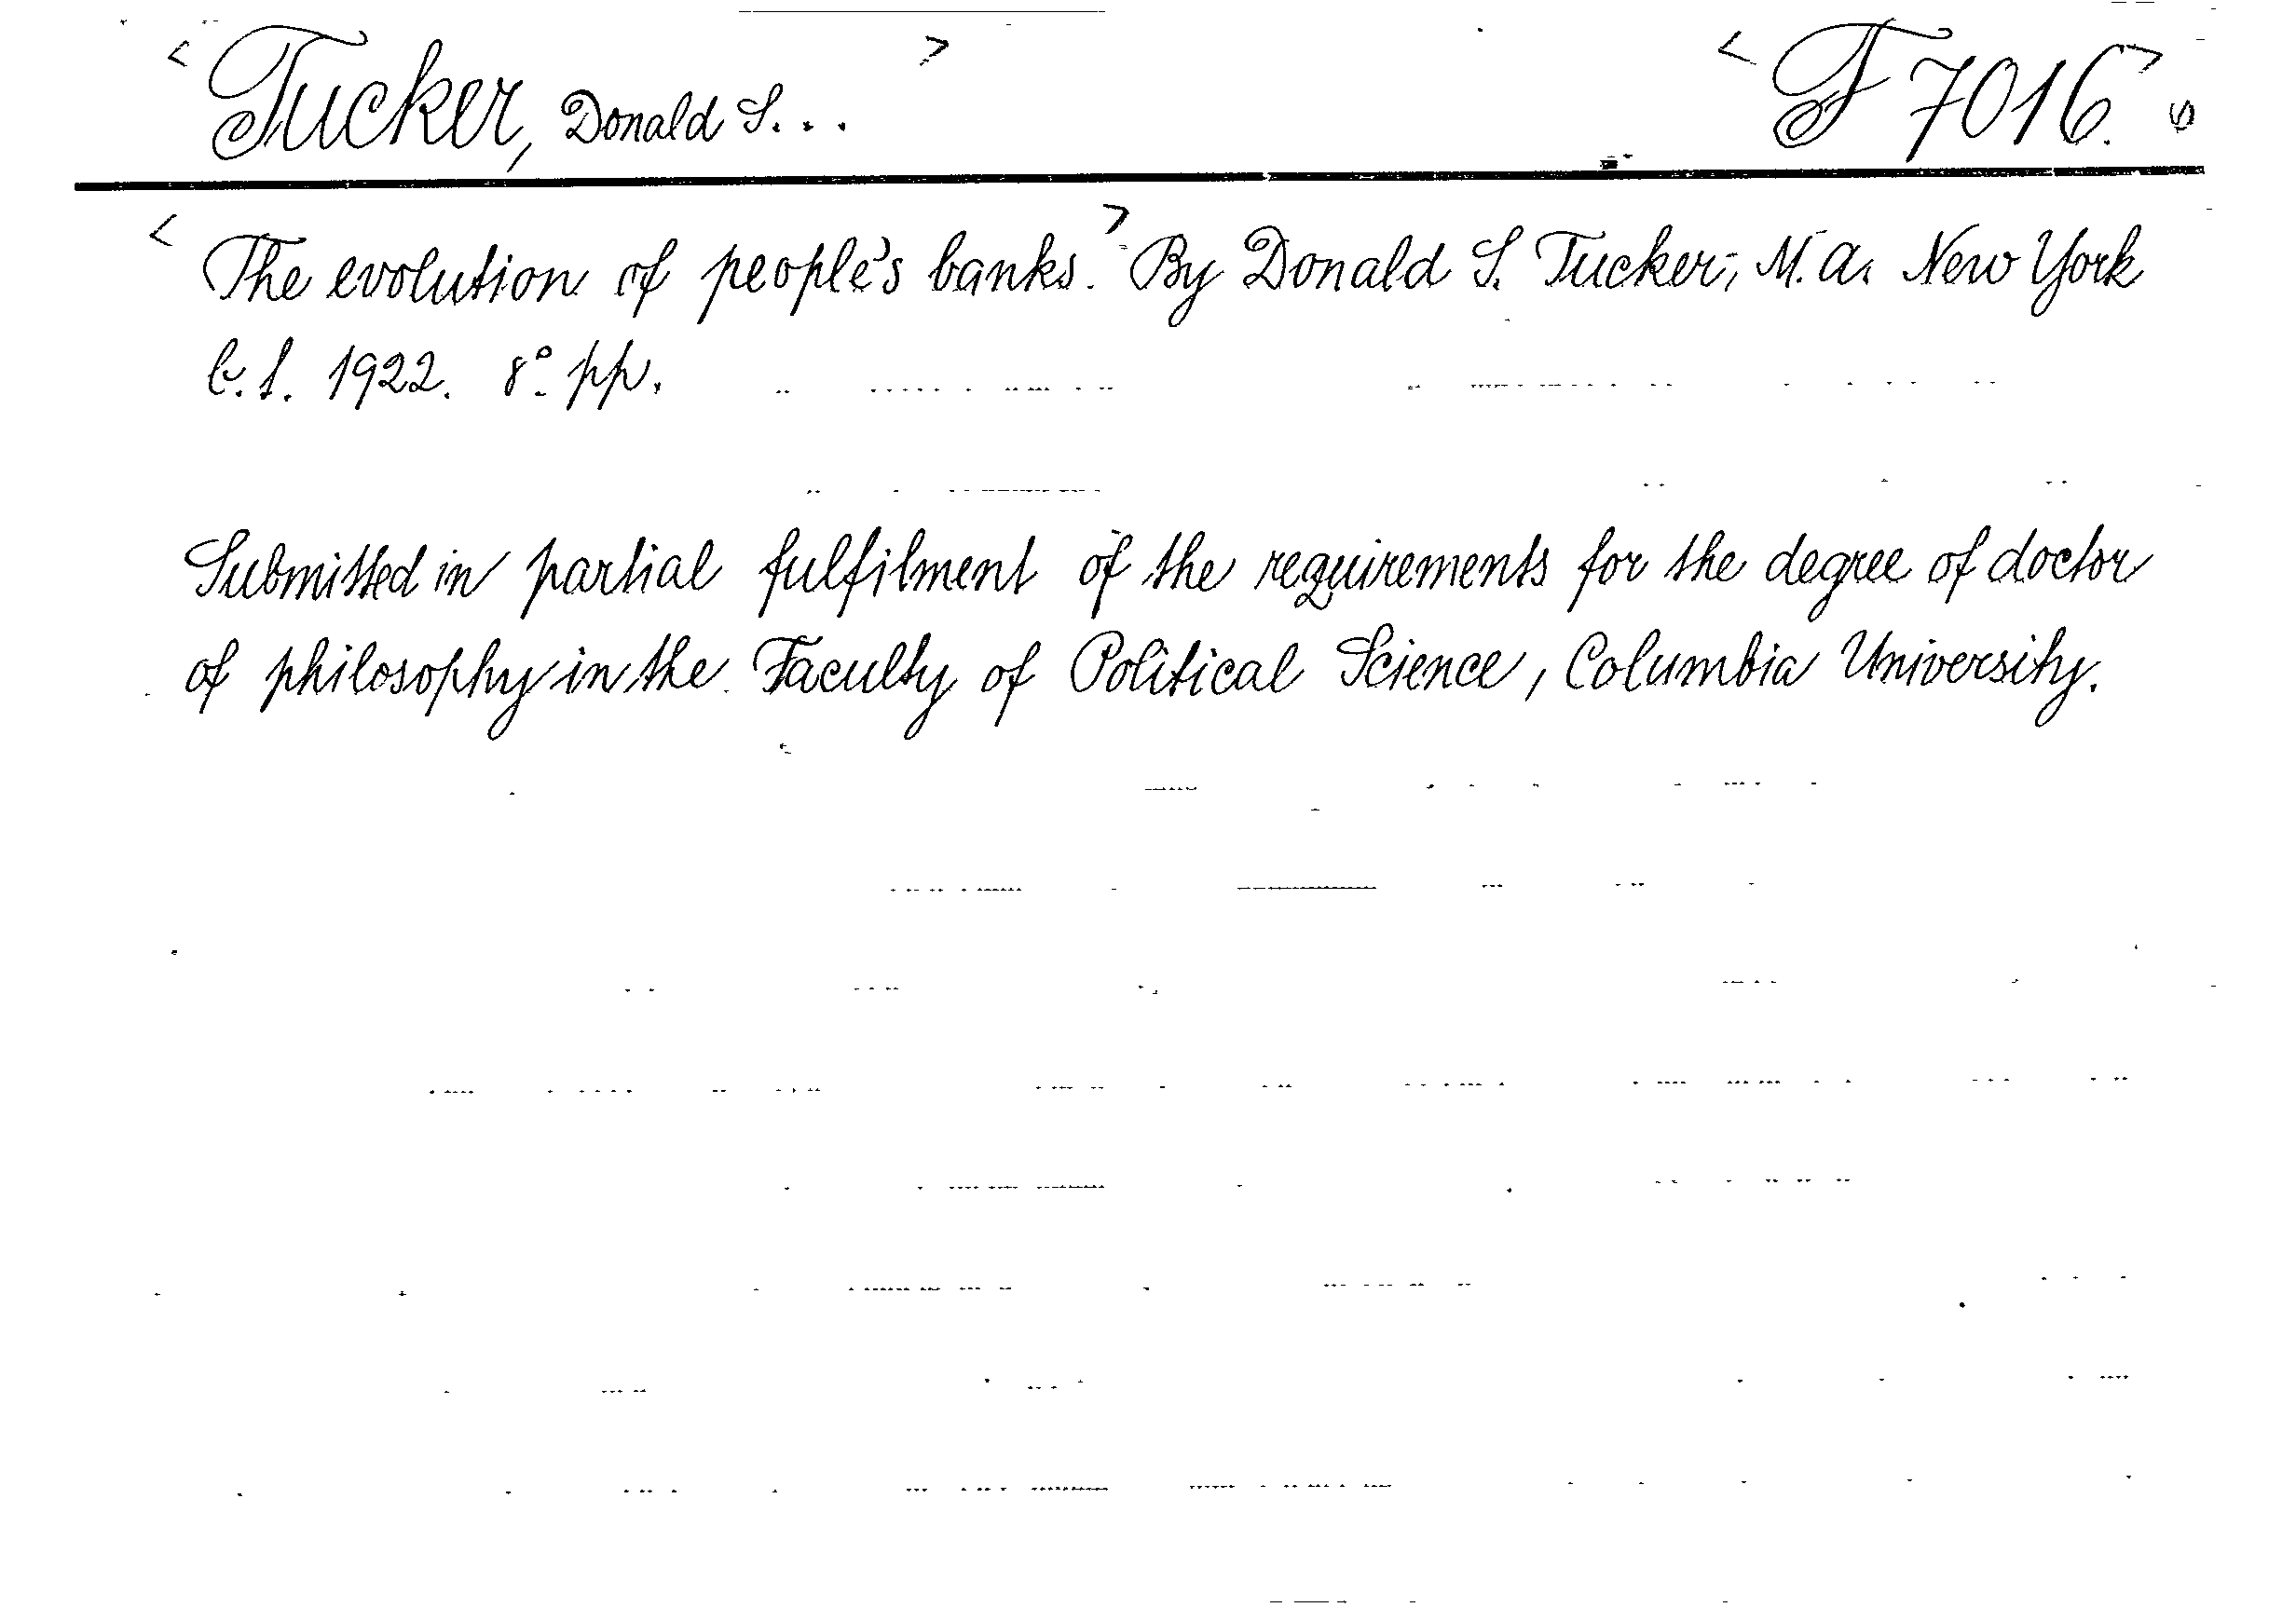 <Tucker, Donald S...> <F 7016.>
<The evolution of people's banks.> By Donald S. Tucker, M.A. New York
1922. 8° pp.
Submitted in partial fulfilment of the requirements for the degree of doctor
of philosophy in the Faculty of Political Science, Columbia University.